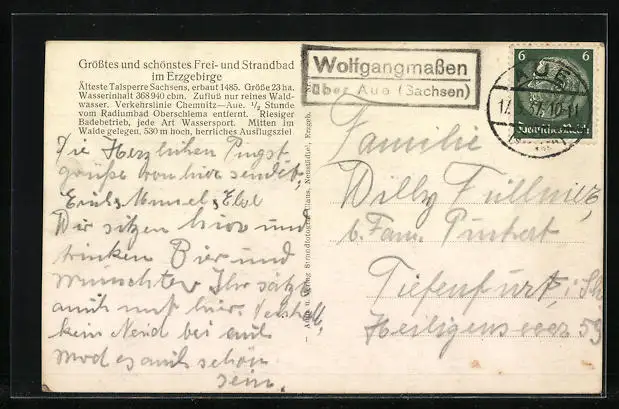 Größtes und schönstes Frei- und Strandbad
im Erzgebirge
Älteste Talsperre Sachsens, erbaut 1485. Größe 23 ha.
Wasserinhalt 368 940 cbm. Zufluß nur reines Wald-
wasser. Verkehrslinie Chemnitz—Aue. ½ Stunde
vom Radiumbad Oberschlema entfernt. Riesiger
Badebetrieb, jede Art Wassersport. Mitten im
Walde gelegen, 530 m hoch, herrliches Ausflugsziel
Die Herzlichen Pfingst
grüße von hier sendet
Erich
Wir sitzen hier und
trinken Bier und
wünschten Ihr säßt
auch mit hier.
kein Neid bei euch
mag es auch schön
sein.
Wolfgangmaßen
über Aue (Sachsen)
6 6
AUE
17. 37.10-11
Deutsches Reich
Familie
Willy Füllner,
b. Fam.
Tiefenfurt, i. Sch
59